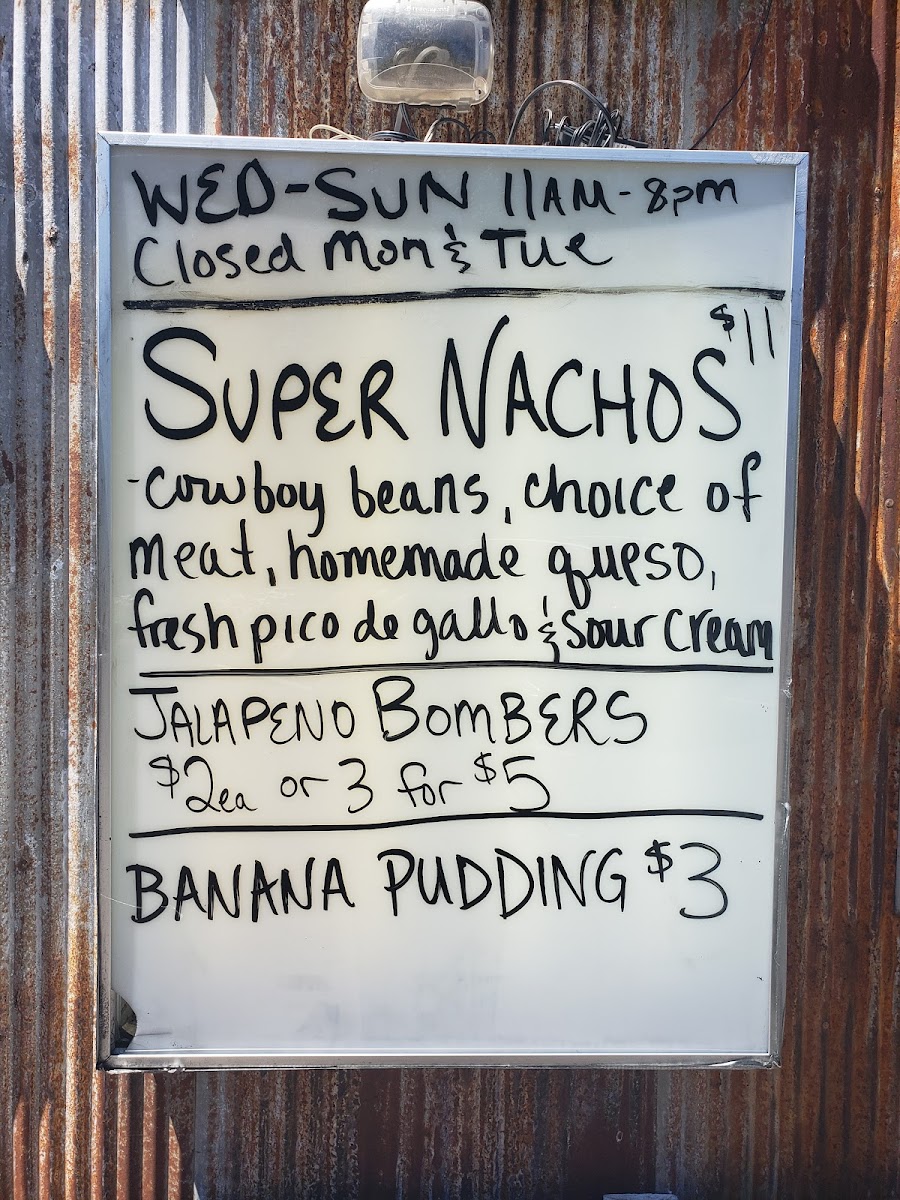 WED-SUN 11AM-8pm
Closed Mon & Tue
$11
SUPER NACHOS
-cowboy beans, choice of
meat, homemade queso,
fresh pico de gallo & sour cream
JALAPENO BOMBERS
$2ea or 3 for $5
BANANA PUDDING $3